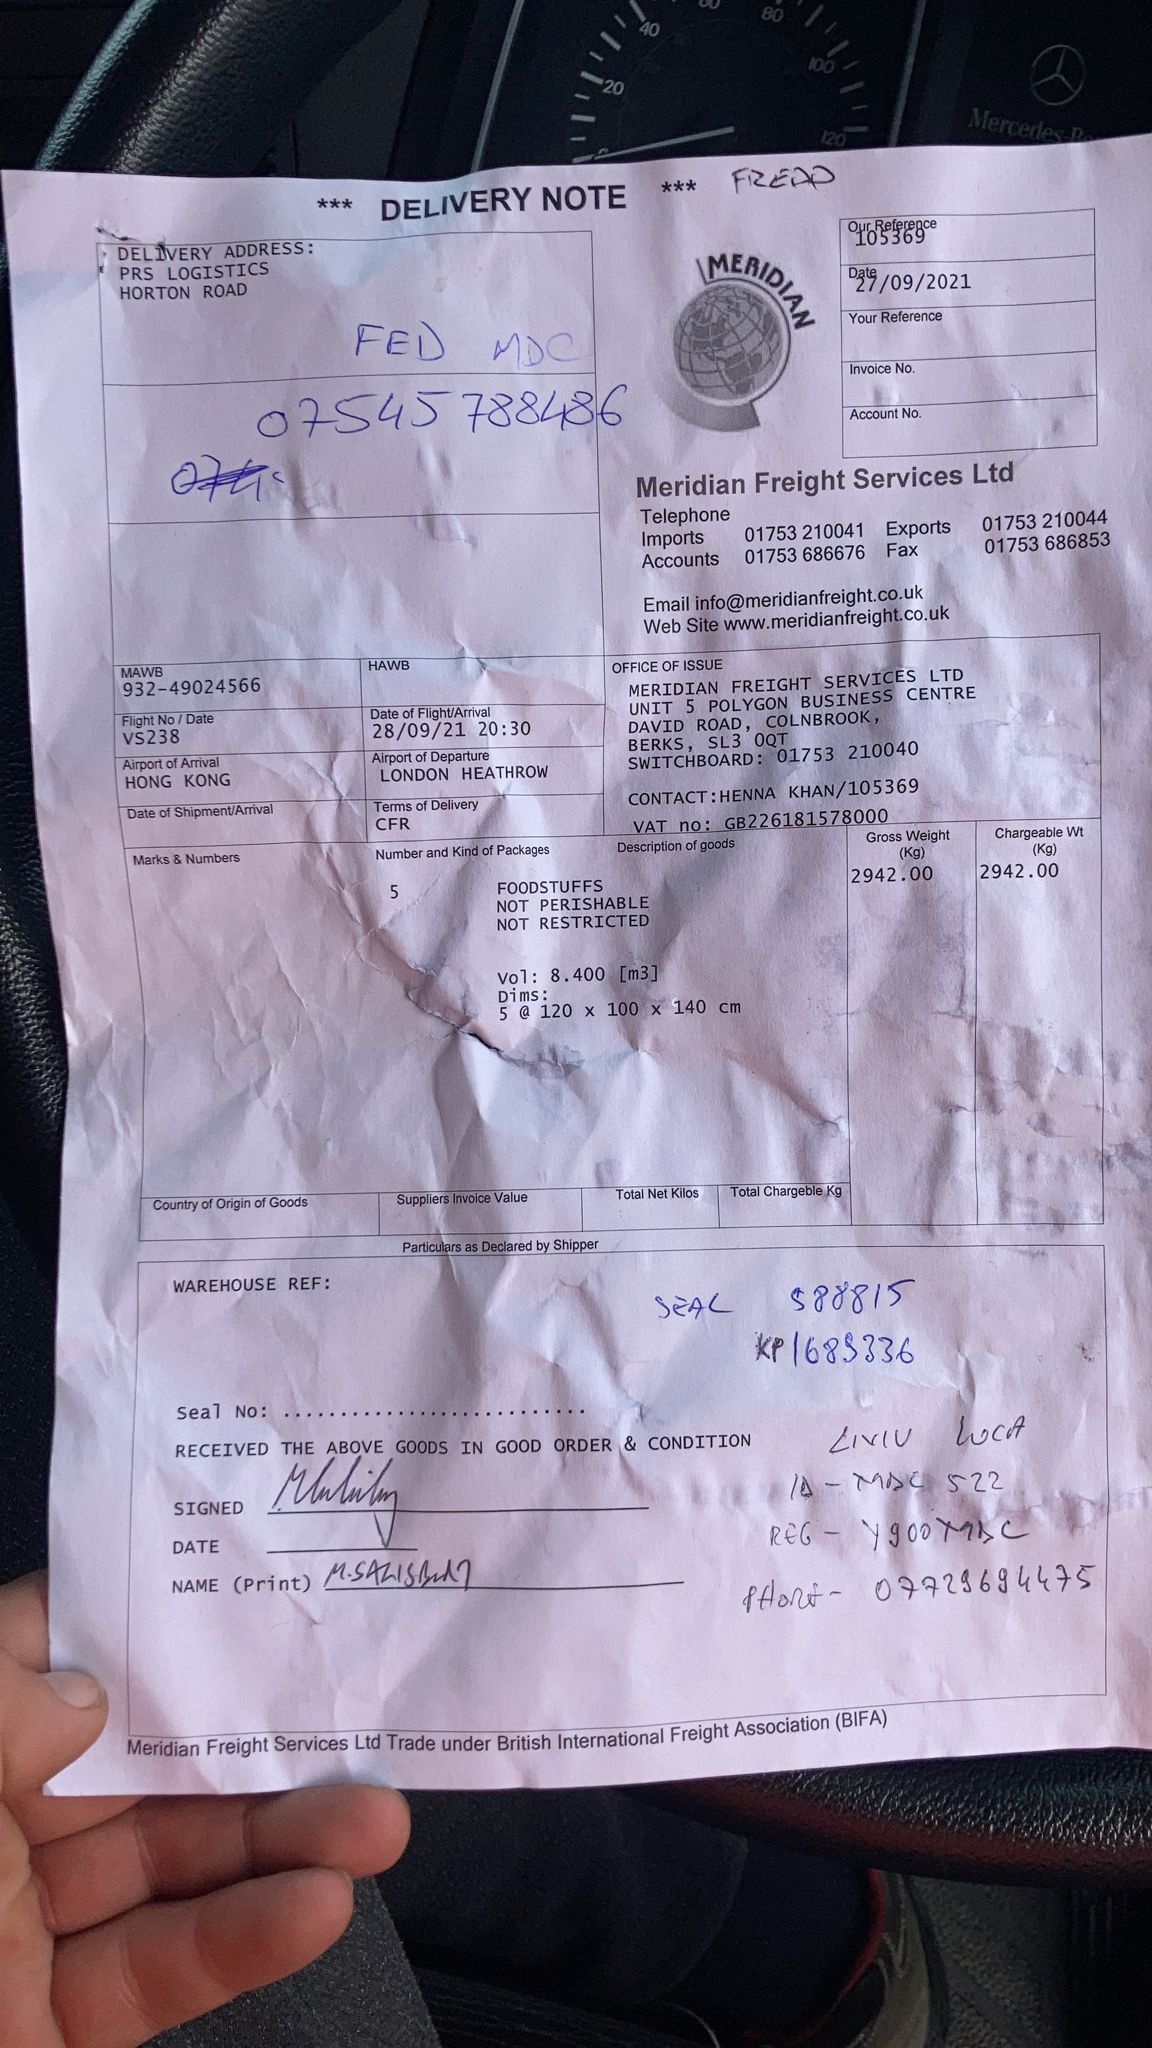 *** DELIVERY NOTE *** FREDD
DELIVERY ADDRESS:
PRS LOGISTICS
HORTON ROAD
FED MDC
07545 788486
MERIDIAN
Our Reference
105369
Date
27/09/2021
Your Reference
Invoice No.
Account No.
Meridian Freight Services Ltd
Telephone
Imports 01753 210041 Exports 01753 210044
Accounts 01753 686676 Fax 01753 686853
Email info@meridianfreight.co.uk
Web Site www.meridianfreight.co.uk
MAWB
932-49024566
HAWB
Flight No / Date
VS238
Date of Flight/Arrival
28/09/21 20:30
Airport of Arrival
HONG KONG
Airport of Departure
LONDON HEATHROW
Date of Shipment/Arrival
Terms of Delivery
CFR
OFFICE OF ISSUE
MERIDIAN FREIGHT SERVICES LTD
UNIT 5 POLYGON BUSINESS CENTRE
DAVID ROAD, COLNBROOK,
BERKS, SL3 0QT
SWITCHBOARD: 01753 210040
CONTACT:HENNA KHAN/105369
VAT no: GB226181578000
Marks & Numbers
Number and Kind of Packages
Description of goods
Gross Weight
(Kg)
Chargeable Wt
(Kg)
5 FOODSTUFFS 2942.00 2942.00
NOT PERISHABLE
NOT RESTRICTED
Vol: 8.400 [m3]
Dims:
5 @ 120 x 100 x 140 cm
Country of Origin of Goods
Suppliers Invoice Value
Total Net Kilos
Total Chargeble Kg
Particulars as Declared by Shipper
WAREHOUSE REF:
SEAL 588815
KP1689336
Seal No: ...........................
RECEIVED THE ABOVE GOODS IN GOOD ORDER & CONDITION
LIVIU LUCA
ID - MDC 522
REG - Y900MDC
PHONE - 07729694475
SIGNED
DATE
NAME (Print) M.SALISBURY
Meridian Freight Services Ltd Trade under British International Freight Association (BIFA)
20
40
60
80
100
120
Mercedes-Be